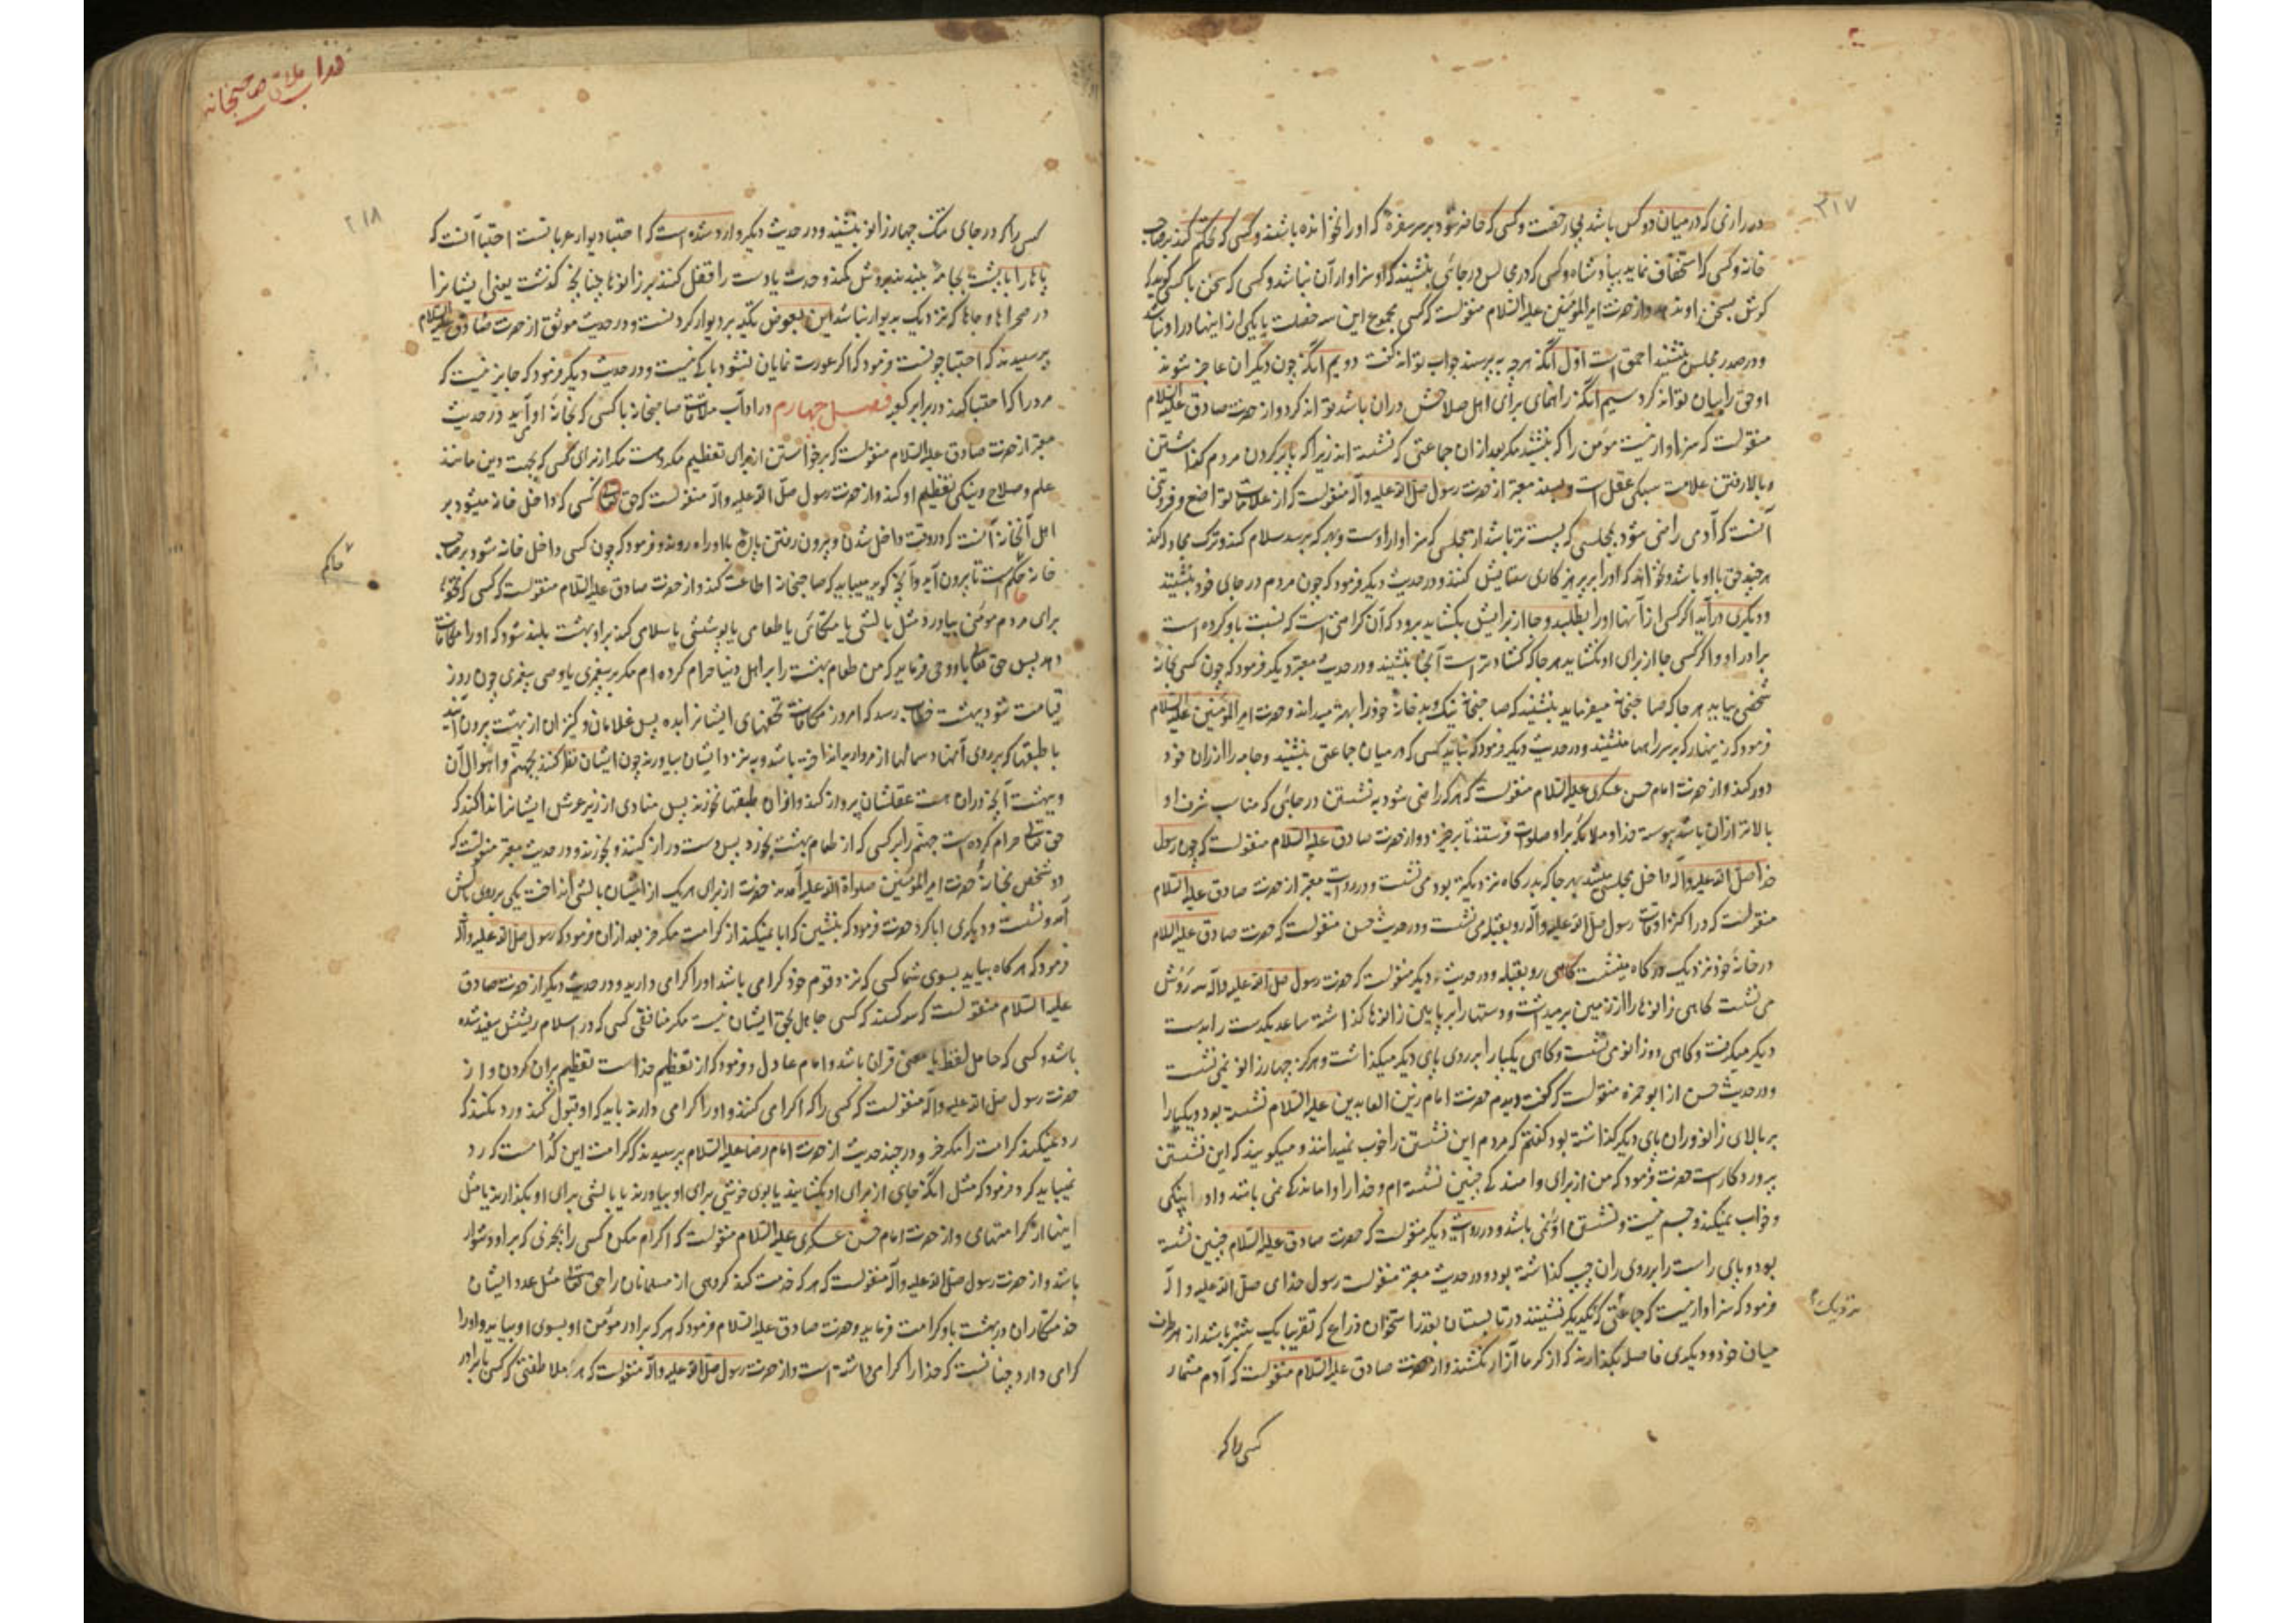 ۳۱۷
در رازی که در میان دو کس باشد بی رخصت و کسی که حاضر شود بر سر سفرهٔ که او را نخوانده باشند و کسی که تحکم کند بر صاحب
خانه و کسی که استخفاف نماید بپادشاه و کسی که در مجالس در جائی بنشیند که او سزاوار آن نباشد و کسی که سخن با کسی گوید که
گوش بسخن او ندهد و از حضرت امیر المؤمنین علیه السلام منقولست که کسی مجموع این سه خصلت یا یکی از اینها در او نباشد
و در صدر مجلس بنشیند احمق است اول آنکه هر چه بپرسند جواب تواند گفت دویم آنکه چون دیگران عاجز شوند
او حق را بیان تواند کرد سیم آنکه راهنمای برای که اهل صلاحش در آن باشد تواند کرد و از حضرت صادق علیه السلام
منقولست که سزاوار نیست مؤمن را که بنشیند مگر بعد از آن جماعتی که نشسته اند زیرا که پا بر گردن مردم گذاشتن
و بالا رفتن علامت سبکی عقل است و بسند معتبر از حضرت رسول صلی الله علیه و آله منقولست که از علامات تواضع و فروتنی
آنست که آدمی راضی شود بمجلسی که پست تر باشد از مجلسی که سزاوار اوست و بهر که برسد سلام کند و ترک مجادله کند
هر چند حق با او باشد و نخواهد که او را بر پرهیزکاری ستایش کنند و در حدیث دیگر فرمود که چون مردم در جای خود بنشینند
و دیگری درآید اگر کسی از آنها او را بطلبد و جا از برایش بگشاید برود که آن کرامتی است که نسبت باو کرده است
برادر او و اگر کسی جا از برای او نگشاید هر جا که گشاده تر است آنجا بنشیند و در حدیث معتبر دیگر فرمود که چون کسی بخانهٔ
شخصی بیاید هر جا که صاحبخانه میفرماید بنشیند که صاحبخانه نیک و بد خانهٔ خود را بهتر میداند و حضرت امیر المؤمنین علیه السلام
فرمود که زینهار که بر سر راهها منشینید و در حدیث دیگر فرمود که نباید کسی که در میان جماعتی بنشیند و جامه را از ران خود
دور کند و از حضرت امام حسن عسکری علیه السلام منقولست که هر که راضی شود به نشستن در جائی که مناسب شرف او
بالاتر از آن باشد پیوسته خدا و ملائکه بر او صلوات فرستند تا برخیزد و از حضرت صادق علیه السلام منقولست که چون رسول
خدا صلی الله علیه و آله داخل مجلسی میشد بهر جا که بدرگاه نزدیکتر بود می نشست و در روایت معتبر از حضرت صادق علیه السلام
منقولست که در اکثر اوقات رسول صلی الله علیه و آله رو بقبله می نشست و در حدیث حسن منقولست که حضرت صادق علیه السلام
در خانهٔ خود نزدیک درگاه می نشست گاهی رو بقبله و در حدیث دیگر منقولست که حضرت رسول صلی الله علیه و آله سه روش
می نشست گاهی زانوها را از زمین برمیداشت و دستها را بر پایین زانوها گذاشته ساعد یکدست را بدست
دیگر میگرفت و گاهی دو زانو می نشست و گاهی یکپا را بر روی پای دیگر میگذاشت و هرگز چهار زانو نمی نشست
و در حدیث حسن از ابو حمزه منقولست که گفت دیدم حضرت امام زین العابدین علیه السلام نشسته بود و یکپا را
بر بالای زانو و ران پای دیگر گذاشته بود گفتم که مردم این نشستن را خوب نمیدانند و میگویند که این نشستن
پروردگار است حضرت فرمود که من از برای واماندگی چنین نشسته ام و خدا را واماندگی نمی باشد و او را پینکی
و خواب نمیگیرد و جسم نیست و نشستن او نمی باشد و در روایت دیگر منقولست که حضرت صادق علیه السلام چنین نشسته
بود و پای راست را بر روی ران چپ گذاشته بود و در حدیث معتبر منقولست رسول خدا صلی الله علیه و آله
فرمود که سزاوار نیست که جماعتی که نزدیک یکدیگر نشینند در تابستان بقدر استخوان ذراع که تقریبا یک شبر باشد از هر طرف
نزدیک
میان خود و دیگری فاصله بگذارند که از گرما آزار نکشند و از حضرت صادق علیه السلام منقولست که آدم شمار
کسی را که
قداب ملاقی صاحبخانه
۲۱۸
کسی را که در جای تنگ چهار زانو بنشیند و در حدیث دیگر وارد شده است که احتبا دیوار عربانست احتبا آنست که
پاها را با پشت بجامه ببندند یا دست را قفل کنند بر زانوها چنانچه گذشت یعنی ایشان را
در صحراها و جاها که نزدیک بدیوار نباشد این بعوض تکیه بر دیوار کردنست و در حدیث موثق از حضرت صادق علیه السلام
پرسیدند که احتبا چونست فرمود که اگر عورت نمایان نشود باکی نیست و در حدیث دیگر فرمود که جایز نیست که
مرد را که احتبا کند در برابر کعبه فصل چهارم در آداب ملاقات صاحبخانه با کسی که بخانهٔ او آید در حدیث
معتبر از حضرت صادق علیه السلام منقولست که برخواستن از برای تعظیم مکروهست مگر از برای کسی که بجهت دین مانند
علم و صلاح و نیکی تعظیم او کند و از حضرت رسول صلی الله علیه و آله منقولست که حق کسی که داخل خانه میشود بر
اهل آنخانه آنست که در وقت داخل شدن و بیرون رفتن پارهٔ با او راه روند و فرمود که چون کسی داخل خانه شود بر صاحب
خانه حاکم است تا بیرون آید و آنچه گوید میباید که صاحبخانه اطاعت کند و از حضرت صادق علیه السلام منقولست که کسی که تحفهٔ
حاکم
برای مردم مؤمن بیاورد مثل بالشی یا متکائی یا طعامی یا پوششی یا سلامی کند بر او بهشت بلند شود که او را مکافات
دهد پس حق تعالی باو وحی فرماید که من طعام بهشت را بر اهل دنیا حرام کرده ام مگر بر پیغمبری یا وصی پیغمبری چون روز
قیامت شود بهشت خطاب رسد که امروز مکافات تحفهای ایشان را بده پس غلامان و کنیزان از بهشت بیرون آیند
با طبقها که بر روی آنها دستمالها از مروارید انداخته باشد و به نزد ایشان بیاورند چون ایشان نظر کنند بجهنم و احوال آن
و بهشت آنچه در آن هست عقلشان پرواز کند و از آن طبقها نخورند پس منادی از زیر عرش ایشان را ندا کند که
حق تعالی حرام کرده است جهنم را بر کسی که از طعام بهشت بخورد پس دست دراز کنند و بخورند و در حدیث معتبر منقولست که
دو شخص بخانهٔ حضرت امیر المؤمنین صلوات الله علیه آمدند حضرت از برای هر یک از ایشان بالشی انداخت یکی بر روی بالش
آمد و نشست و دیگری ابا کرد حضرت فرمود که بنشین که ابا نمیکند از کرامت مگر خر بعد از آن فرمود که رسول صلی الله علیه و آله
فرمود که هر گاه بیاید بسوی شما کسی که نزد قوم خود گرامی باشد او را گرامی دارید و در حدیث دیگر از حضرت صادق
علیه السلام منقولست که سه کسند که کسی جاهل بحق ایشان نیست مگر منافقی کسی که در اسلام ریشش سفید شده
باشد و کسی که حامل لفظ یا معنی قرآن باشد و امام عادل و فرمود که از تعظیم خداست تعظیم پیران کردن و از
حضرت رسول صلی الله علیه و آله منقولست که کسی را که اکرامی کنند و او را گرامی دارند باید که او قبول کند و رد نکند که
رد نمیکند کرامت را مگر خر و در چند حدیث از حضرت امام رضا علیه السلام پرسیدند که کرامت این کدامست که رد
نمیباید کرد فرمود که مثل آنکه جای از برای او بگشایند یا بوی خوشی برای او بیاورند یا بالشی برای او بگذارند یا مثل
اینها از کرامتهای و از حضرت امام حسن عسکری علیه السلام منقولست که اکرام مکن کسی را بچیزی که بر او دشوار
باشد و از حضرت رسول صلی الله علیه و آله منقولست که هر که خدمت کند گروهی از مسلمانان را حق تعالی مثل عدد ایشان
خدمتکاران در بهشت باو کرامت فرماید و حضرت صادق علیه السلام فرمود که هر که برادر مؤمن او بسوی او بیاید و او را
گرامی دارد چنانست که خدا را گرامی داشته است و از حضرت رسول صلی الله علیه و آله منقولست که هر ملاطفتی که کسی با برادر